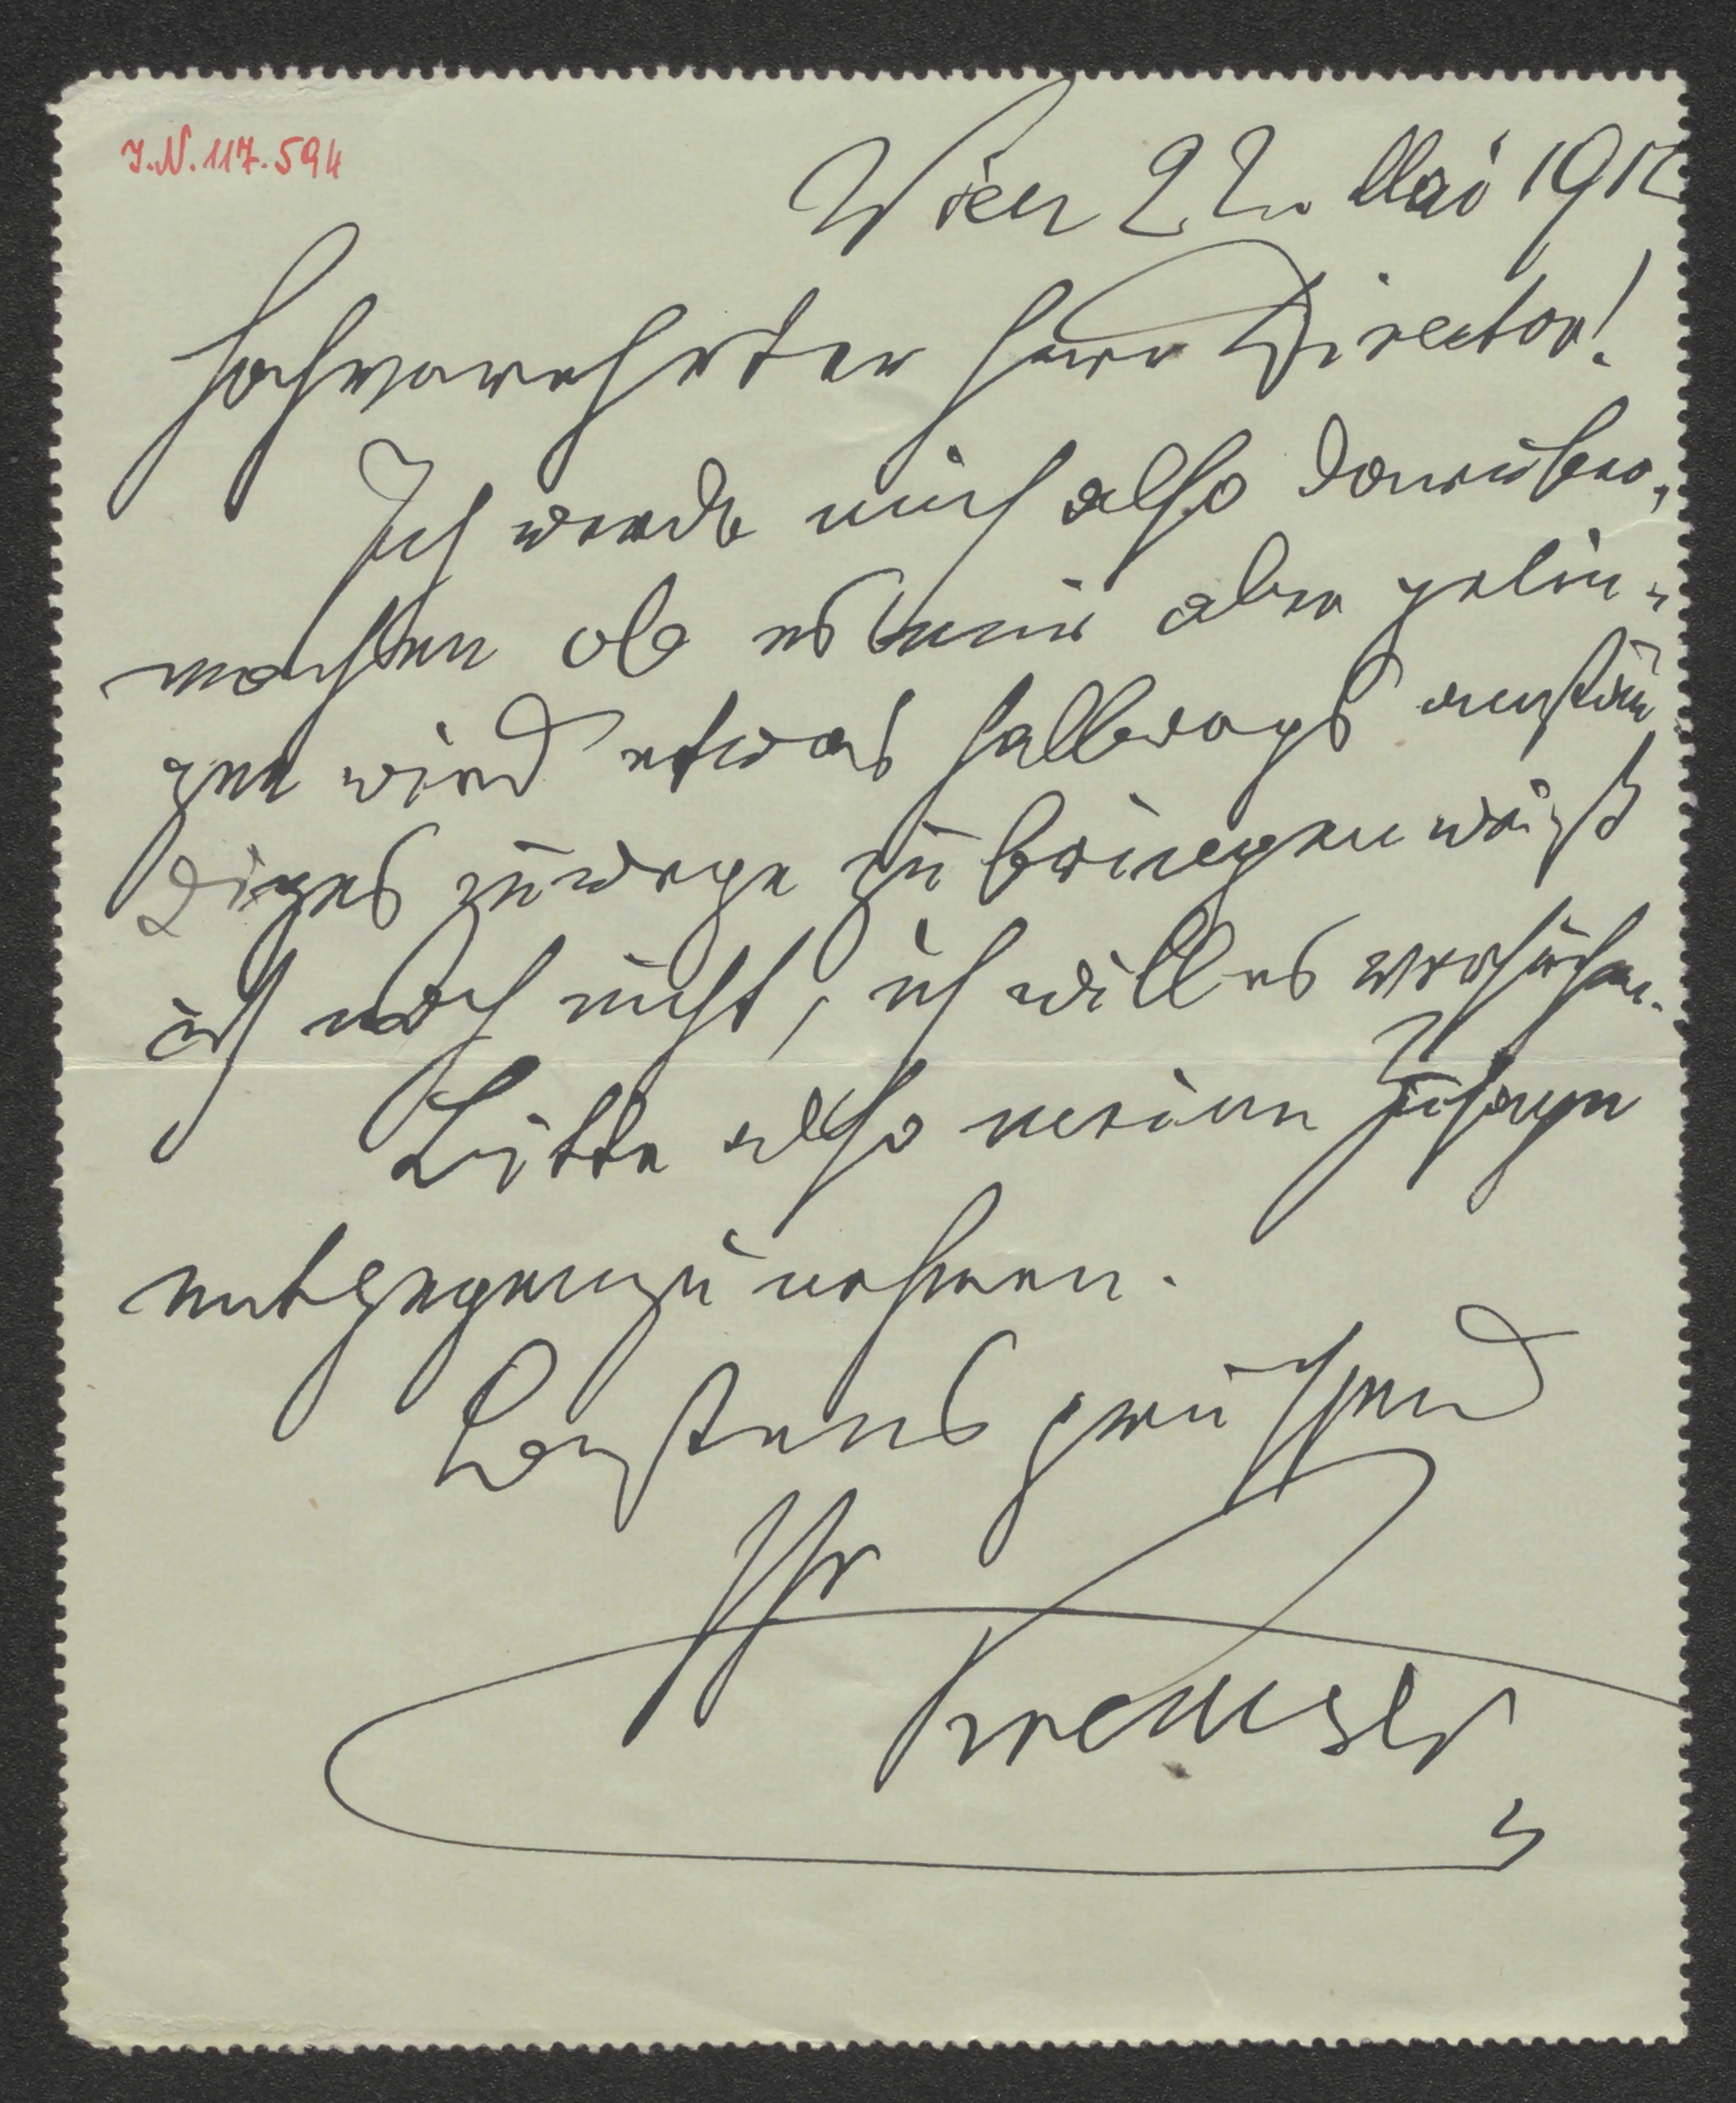 J.N. 117.594
Wien 22. Mai 1912
Hochverehrter Herr Director!
Ich werde mich also darüber
machen ob es mir aber gelin-
gen wird etwas halbwegs anstän
diges zuwege zu bringen weiß
ich noch nicht, ich will es versuchen.
Bitte also meine Zusage
entgegenzunehmen.
Bestens grüßend
Ihr
Kremser